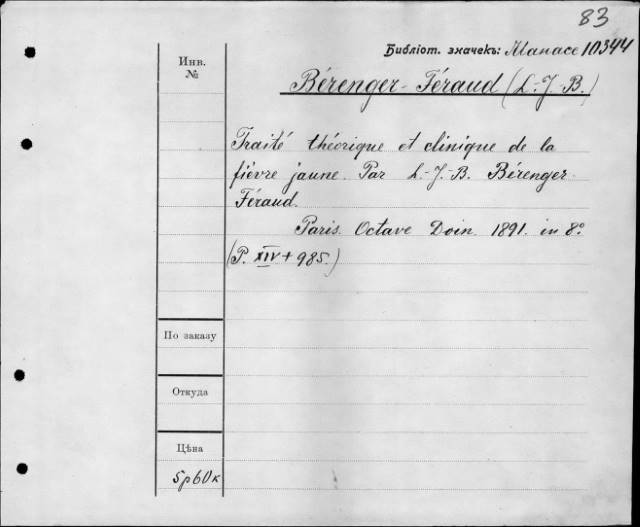 83
Библіот. значекъ: Manace 10344
Инв.
№
Bérenger-Féraud (L.-J.-B.)
Traité théorique et clinique de la
fièvre jaune. Par L.-J.-B. Bérenger-
Féraud.
Paris. Octave Doin. 1891. in 8º
(P. XIV + 985.)
По заказу
Откуда
Цѣна
5р60к